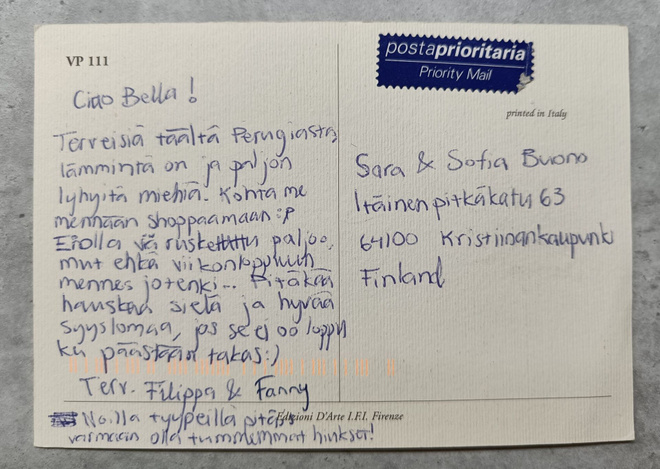 VP 111
postaprioritaria
Priority Mail
printed in Italy
Ciao Bella!
Terveisiä täältä Perugiasta,
lämmintä on ja paljon
lyhyitä miehiä. Kohta me
mennään shoppaamaan :P
Eiolla viä ruskettttu paljoo,
mut ehkä viikonloppuun
mennes jotenki... Pitäkää
hauskaa sielä ja hyvää
syyslomaa, jos se ei oo loppu
ku päästään takas:)
Terv. Filippa & Fanny
Noilla tyypeillä pitäis
varmaan olla tummemmat hiukset!
Sara & Sofia Buono
Itäinen pitkäkatu 63
64100 Kristiinankaupunki
Finland
Edizioni D'Arte I.F.I. Firenze